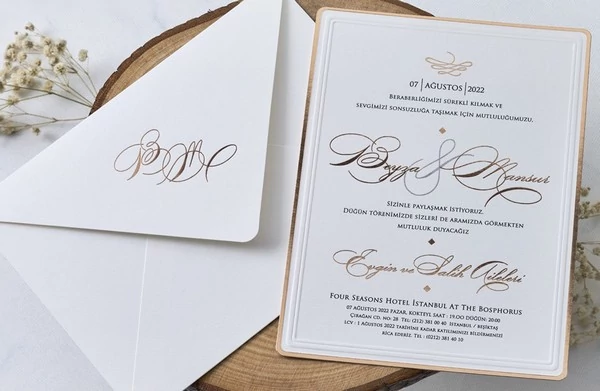 B M
07 | AĞUSTOS | 2022
BERABERLİĞİMİZİ SÜREKLİ KILMAK VE
SEVGİMİZİ SONSUZLUĞA TAŞIMAK İÇİN MUTLULUĞUMUZU,
Beyza & Mansur
SİZİNLE PAYLAŞMAK İSTİYORUZ.
DÜĞÜN TÖRENİMİZDE SİZLERİ DE ARAMIZDA GÖRMEKTEN
MUTLULUK DUYACAĞIZ
Evgin ve Salih Aileleri
FOUR SEASONS HOTEL İSTANBUL AT THE BOSPHORUS
07 AĞUSTOS 2022 PAZAR, KOKTEYL SAAT : 19.00 DÜĞÜN: 20:00
ÇIRAĞAN CD. NO: 28 TEL: (212) 381 40 00 İSTANBUL / BEŞİKTAŞ
LCV : 1 AĞUSTOS 2022 TARİHİNE KADAR KATILIMINIZI BİLDİRMENİZİ
RİCA EDERİZ. TEL: (0212) 381 40 10